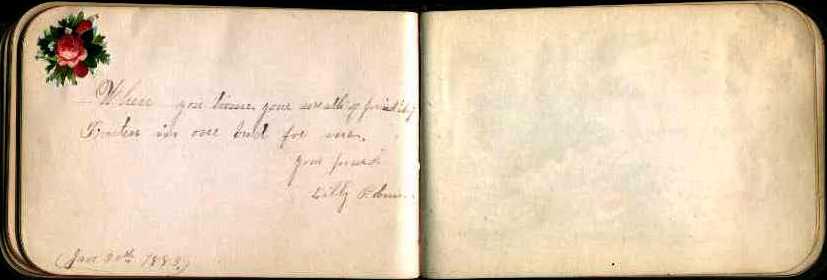 When you twine your wreath of friendship
Fasten in one bud for me.
Your friend
Libby
(Jan 30th 1883)